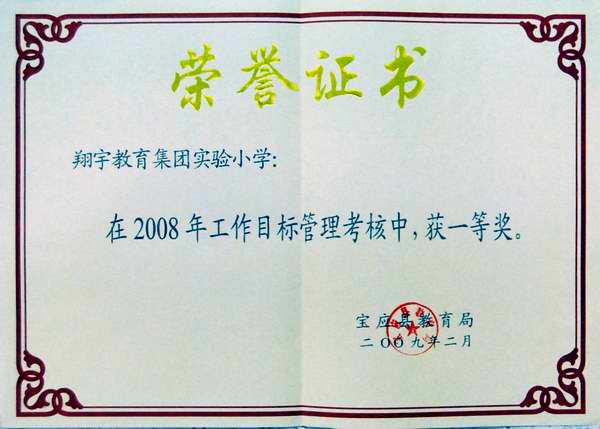 荣誉证书
翔宇教育集团实验小学：
在2008年工作目标管理考核中，获一等奖。
宝应县教育局
二〇〇九年二月